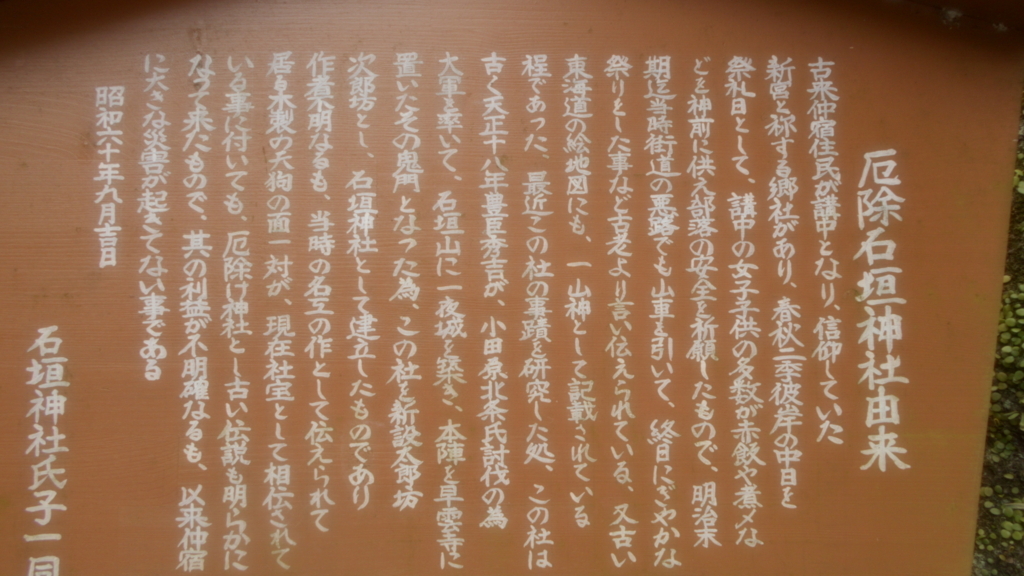 厄除石垣神社由来
古来仲宿住民が講中となり、信仰していた
新宮と称する郷社があり、春秋二季彼岸の中日を
祭礼日として、講中の女子子供の多数が赤飯や煮〆な
どを神前に供え部落の安全を祈願したもので、明治末
期迄当時街道の悪路でも山車を引いて、終日にぎやかな
祭りとした事など古老より言い伝えられている、又古い
東海道の絵地図にも、一山神として記載されている
程であった、最近この社の事蹟を研究した処、この社は
古く天正十八年豊臣秀吉が、小田原北条氏討伐の為
大軍を率いて、石垣山に一夜城を築き、本陣を早雲寺に
置いたその鬼門となった為、この社を新設太郎坊
次郎坊とし、石垣神社として建立したものであり
作者不明なるも、当時の名工の作として伝えられて
居る木製の天狗の面一対が、現在社宝として相伝されて
いる事に付いても、厄除け神社とし古い伝説も明らかに
なって来たもので、其の利益が不明確なるも、以来仲宿
に大きな災害が起きてない事である
昭和六十年九月吉日
石垣神社氏子一同